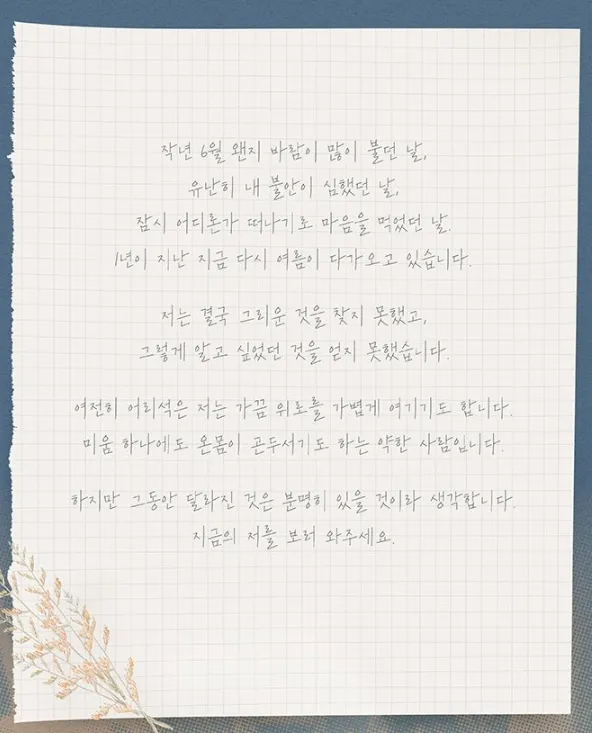 작년 6월 왠지 바람이 많이 불던 날,
유난히 내 불안이 심했던 날,
잠시 어디론가 떠나기로 마음을 먹었던 날.
1년이 지난 지금 다시 여름이 다가오고 있습니다.
저는 결국 그리운 것을 찾지 못했고,
그렇게 알고 싶었던 것을 얻지 못했습니다.
여전히 어리석은 저는 가끔 위로를 가볍게 여기기도 합니다.
미움 하나에도 온몸이 곤두서기도 하는 약한 사람입니다.
하지만 그동안 달라진 것은 분명히 있을 것이라 생각합니다.
지금의 저를 보러 와주세요.